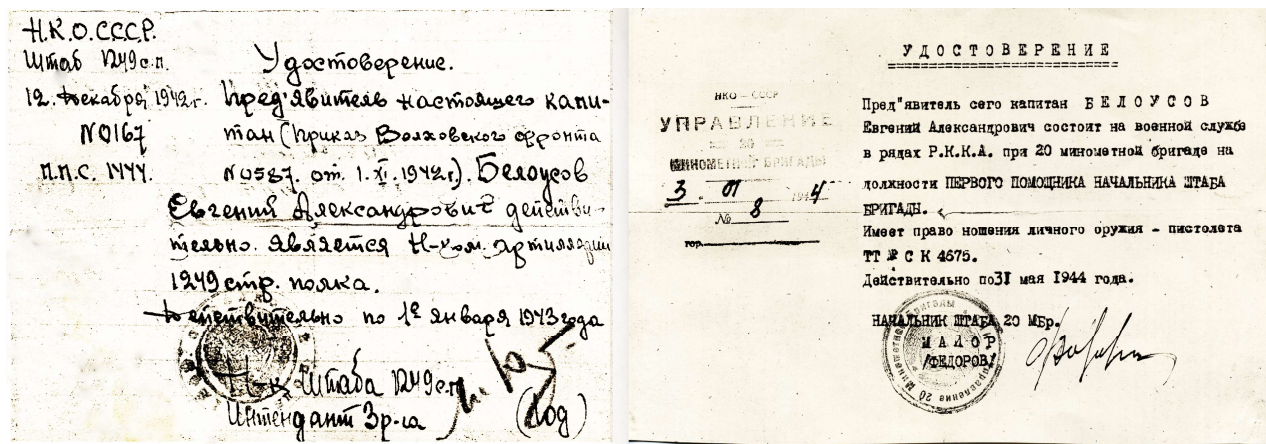 Н.К.О.СССР.
Штаб 1249 с.п.
12. декабря 1942г.
№0167
П.П.С. 1444.
Удостоверение.
Пред'явитель настоящего капи-
тан (приказ Волховского фронта
№0587. от. 1. XI. 1942г.). Белоусов
Евгений Александрович действи-
тельно. является Н-ком. артиллерии
1249 стр. полка.
Действительно по 1е января 1943 года
Н-к Штаба 1249 с.п.
Интендант 3р-га
(Код)
УДОСТОВЕРЕНИЕ
НКО – СССР
УПРАВЛЕНИЕ
20
МИНОМЕТНОЙ БРИГАДЫ
3 01 1944
№ 8
гор.
Пред"явитель сего капитан БЕЛОУСОВ
Евгений Александрович состоит на военной службе
в рядах Р.К.К.А. при 20 минометной бригаде на
должности ПЕРВОГО ПОМОЩНИКА НАЧАЛЬНИКА ШТАБА
БРИГАДЫ.
Имеет право ношения личного оружия - пистолета
ТТ № С К 4675.
Действительно по 31 мая 1944 года.
НАЧАЛЬНИК ШТАБА 20 МБр.
МАЙОР
/ФЕДОРОВ/
Управление 20 Минометной бригады